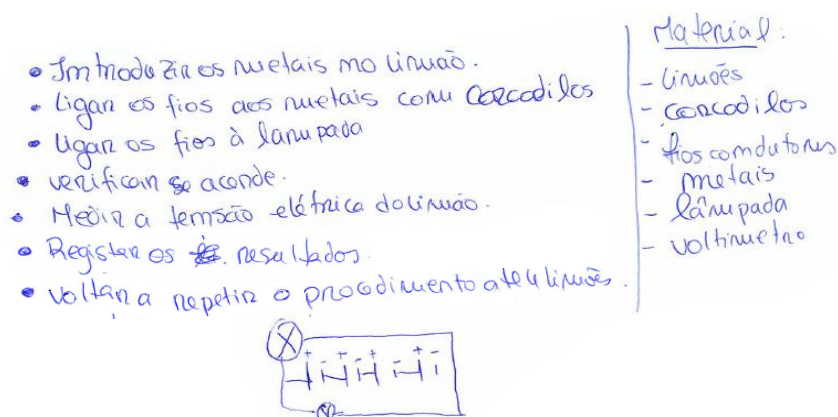 • Introduzir os metais no limão.
• Ligar os fios aos metais com corcodilos
• Ligar os fios à lampada
• verificar se acende.
• Medir a tensão elétrica do limão.
• Registar os resultados.
• Voltar a repetir o procedimento até 4 limões.
Material:
- limões
- corcodilos
- fios condutores
- metais
- lâmpada
- voltimetro